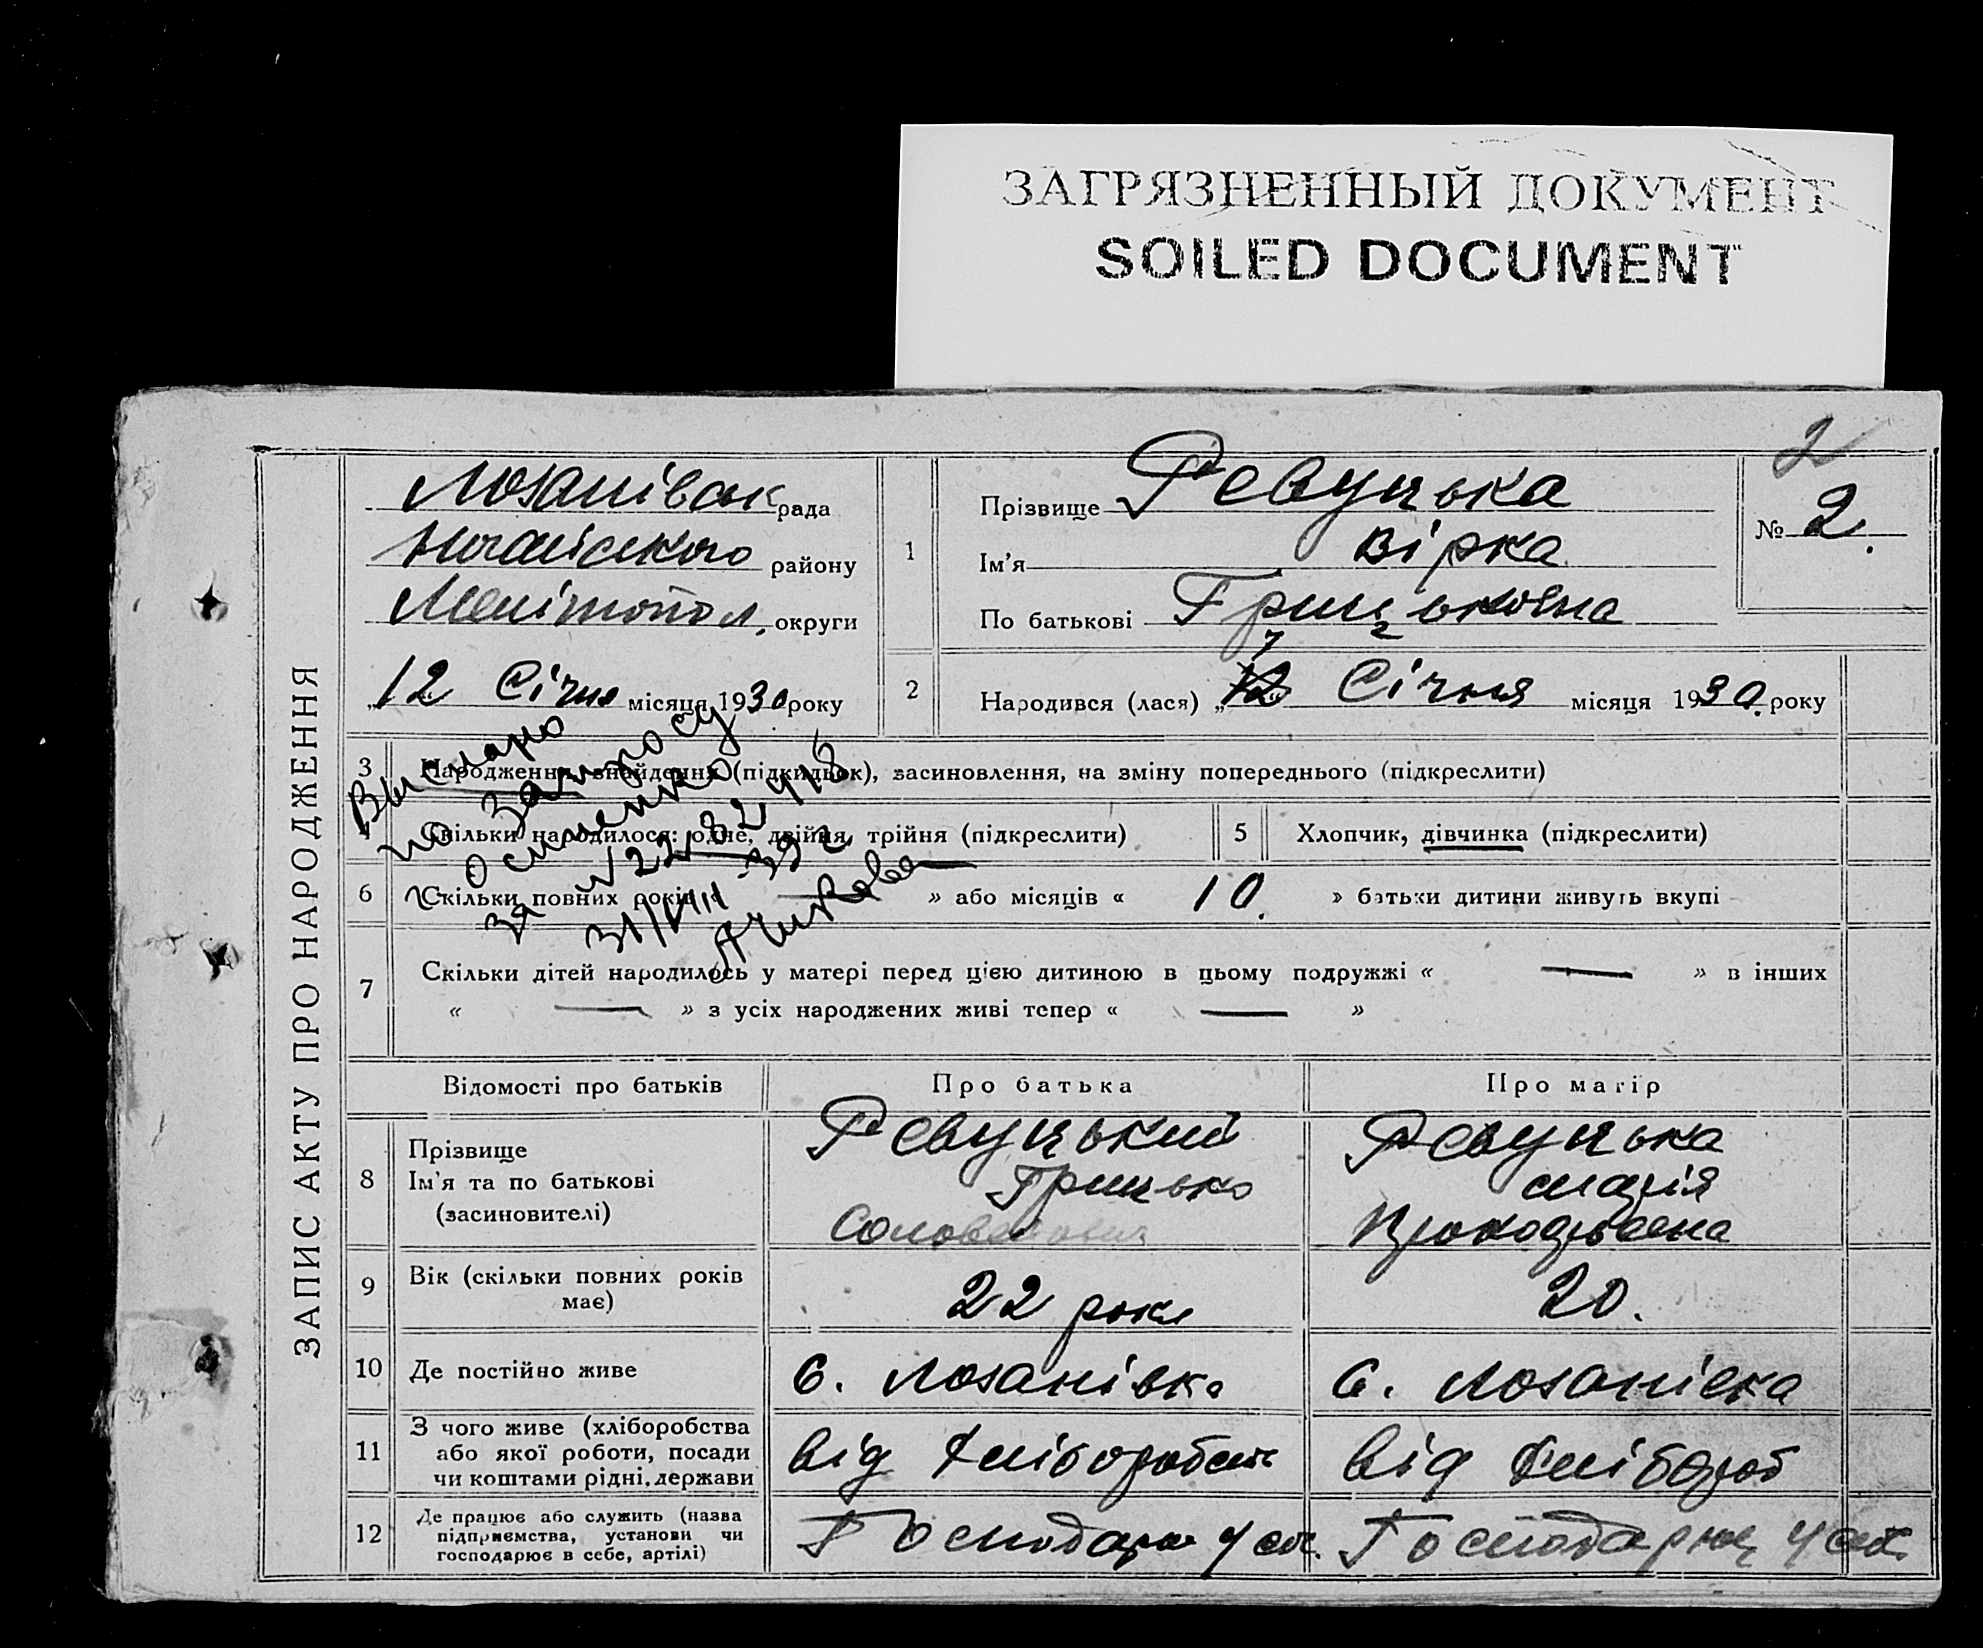 ЗАГРЯЗНЕННЫЙ ДОКУМЕНТ
SOILED DOCUMENT
2
ЗАПИС АКТУ ПРО НАРОДЖЕННЯ
Лозанівськ рада
Ногайського району
Мелітопол. округи
„12 Січня місяця 1930 року
1
Прізвище Ревуцька
Ім'я Вірка
По батькові Грицьковна
№ 2.
2
Народився (лася) „7 Січня місяця 1930. року
3 Народження, знайдення (підкидьок), засиновлення, на зміну попереднього (підкреслити)
4 Скільки народилося: одне, двійня, трійня (підкреслити)
5 Хлопчик, дівчинка (підкреслити)
6 Скільки повних років — » або місяців « 10. » батьки дитини живуть вкупі
Выслано
по запросу
за № 2282418
31/VIII-39 г
7 Скільки дітей народилось у матері перед цією дитиною в цьому подружжі « — » в інших
« — » з усіх народжених живі тепер « — »
Відомості про батьків
Про батька
Про матір
8 Прізвище
Ім'я та по батькові
(засиновителі)
Ревуцький
Грицько
Ревуцька
марія
Прокофьевна
9 Вік (скільки повних років
має)
22 роки
20.
10 Де постійно живе
с. Лозанівка
с. Лозанівка
11 З чого живе (хліборобства
або якої роботи, посади
чи коштами рідні, держави
від хліборобст
від хлібороб
12 Де працює або служить (назва
підприємства, установи чи
господарює в себе, артілі)
Господарює у себе.
Господарює у себе.